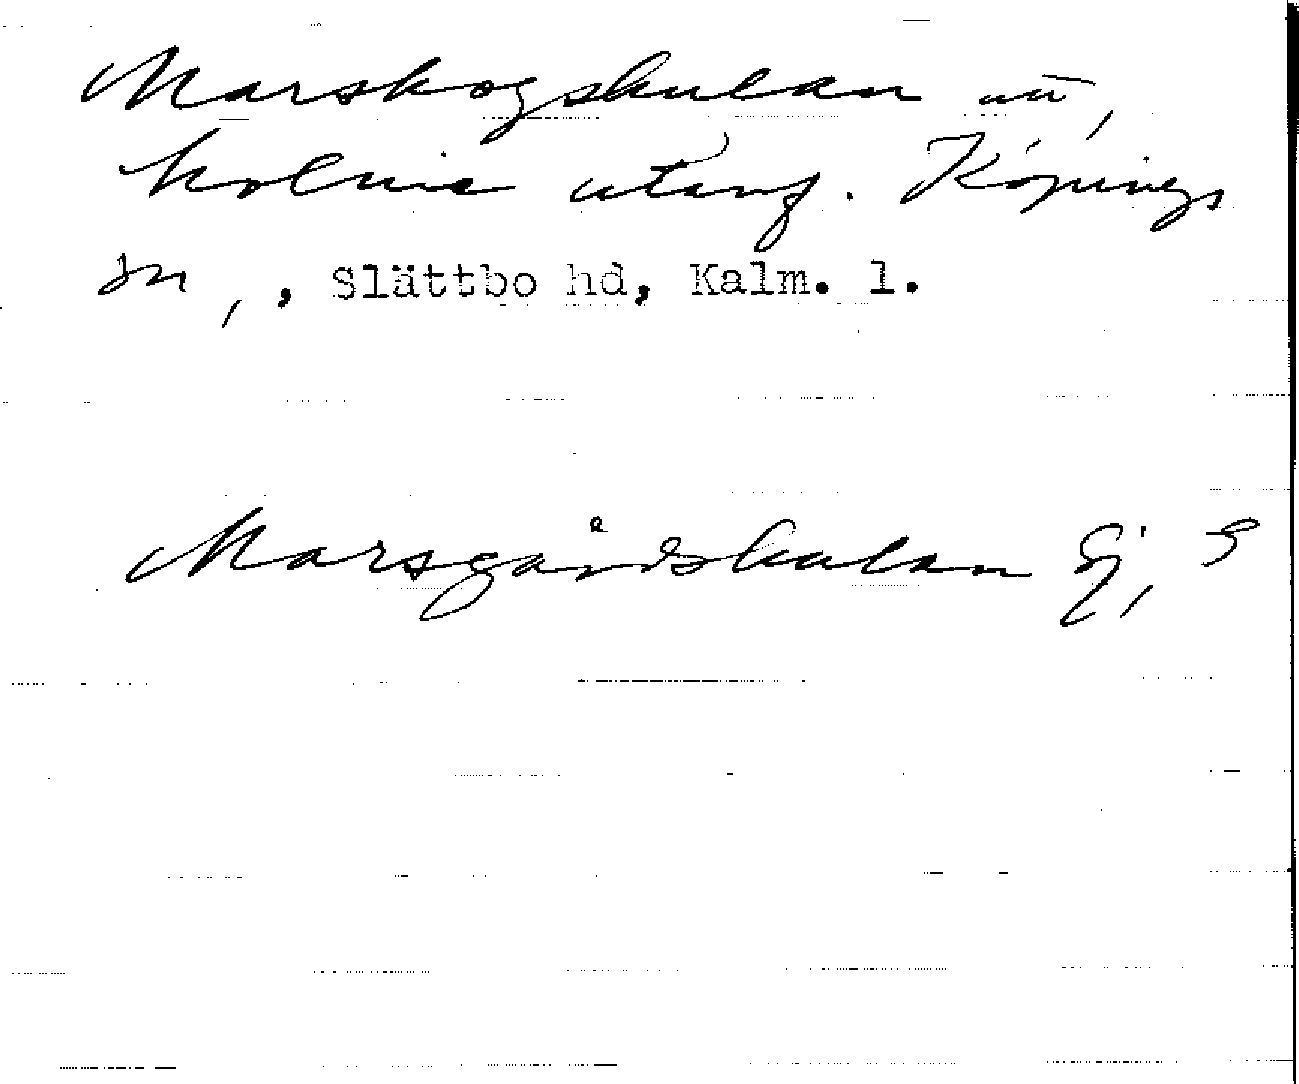 Marskogskulan nu,
holme utanf. Köpings
sn, , Slättbo hd, Kalm. l.
Marsgårdskulan Ej, 9